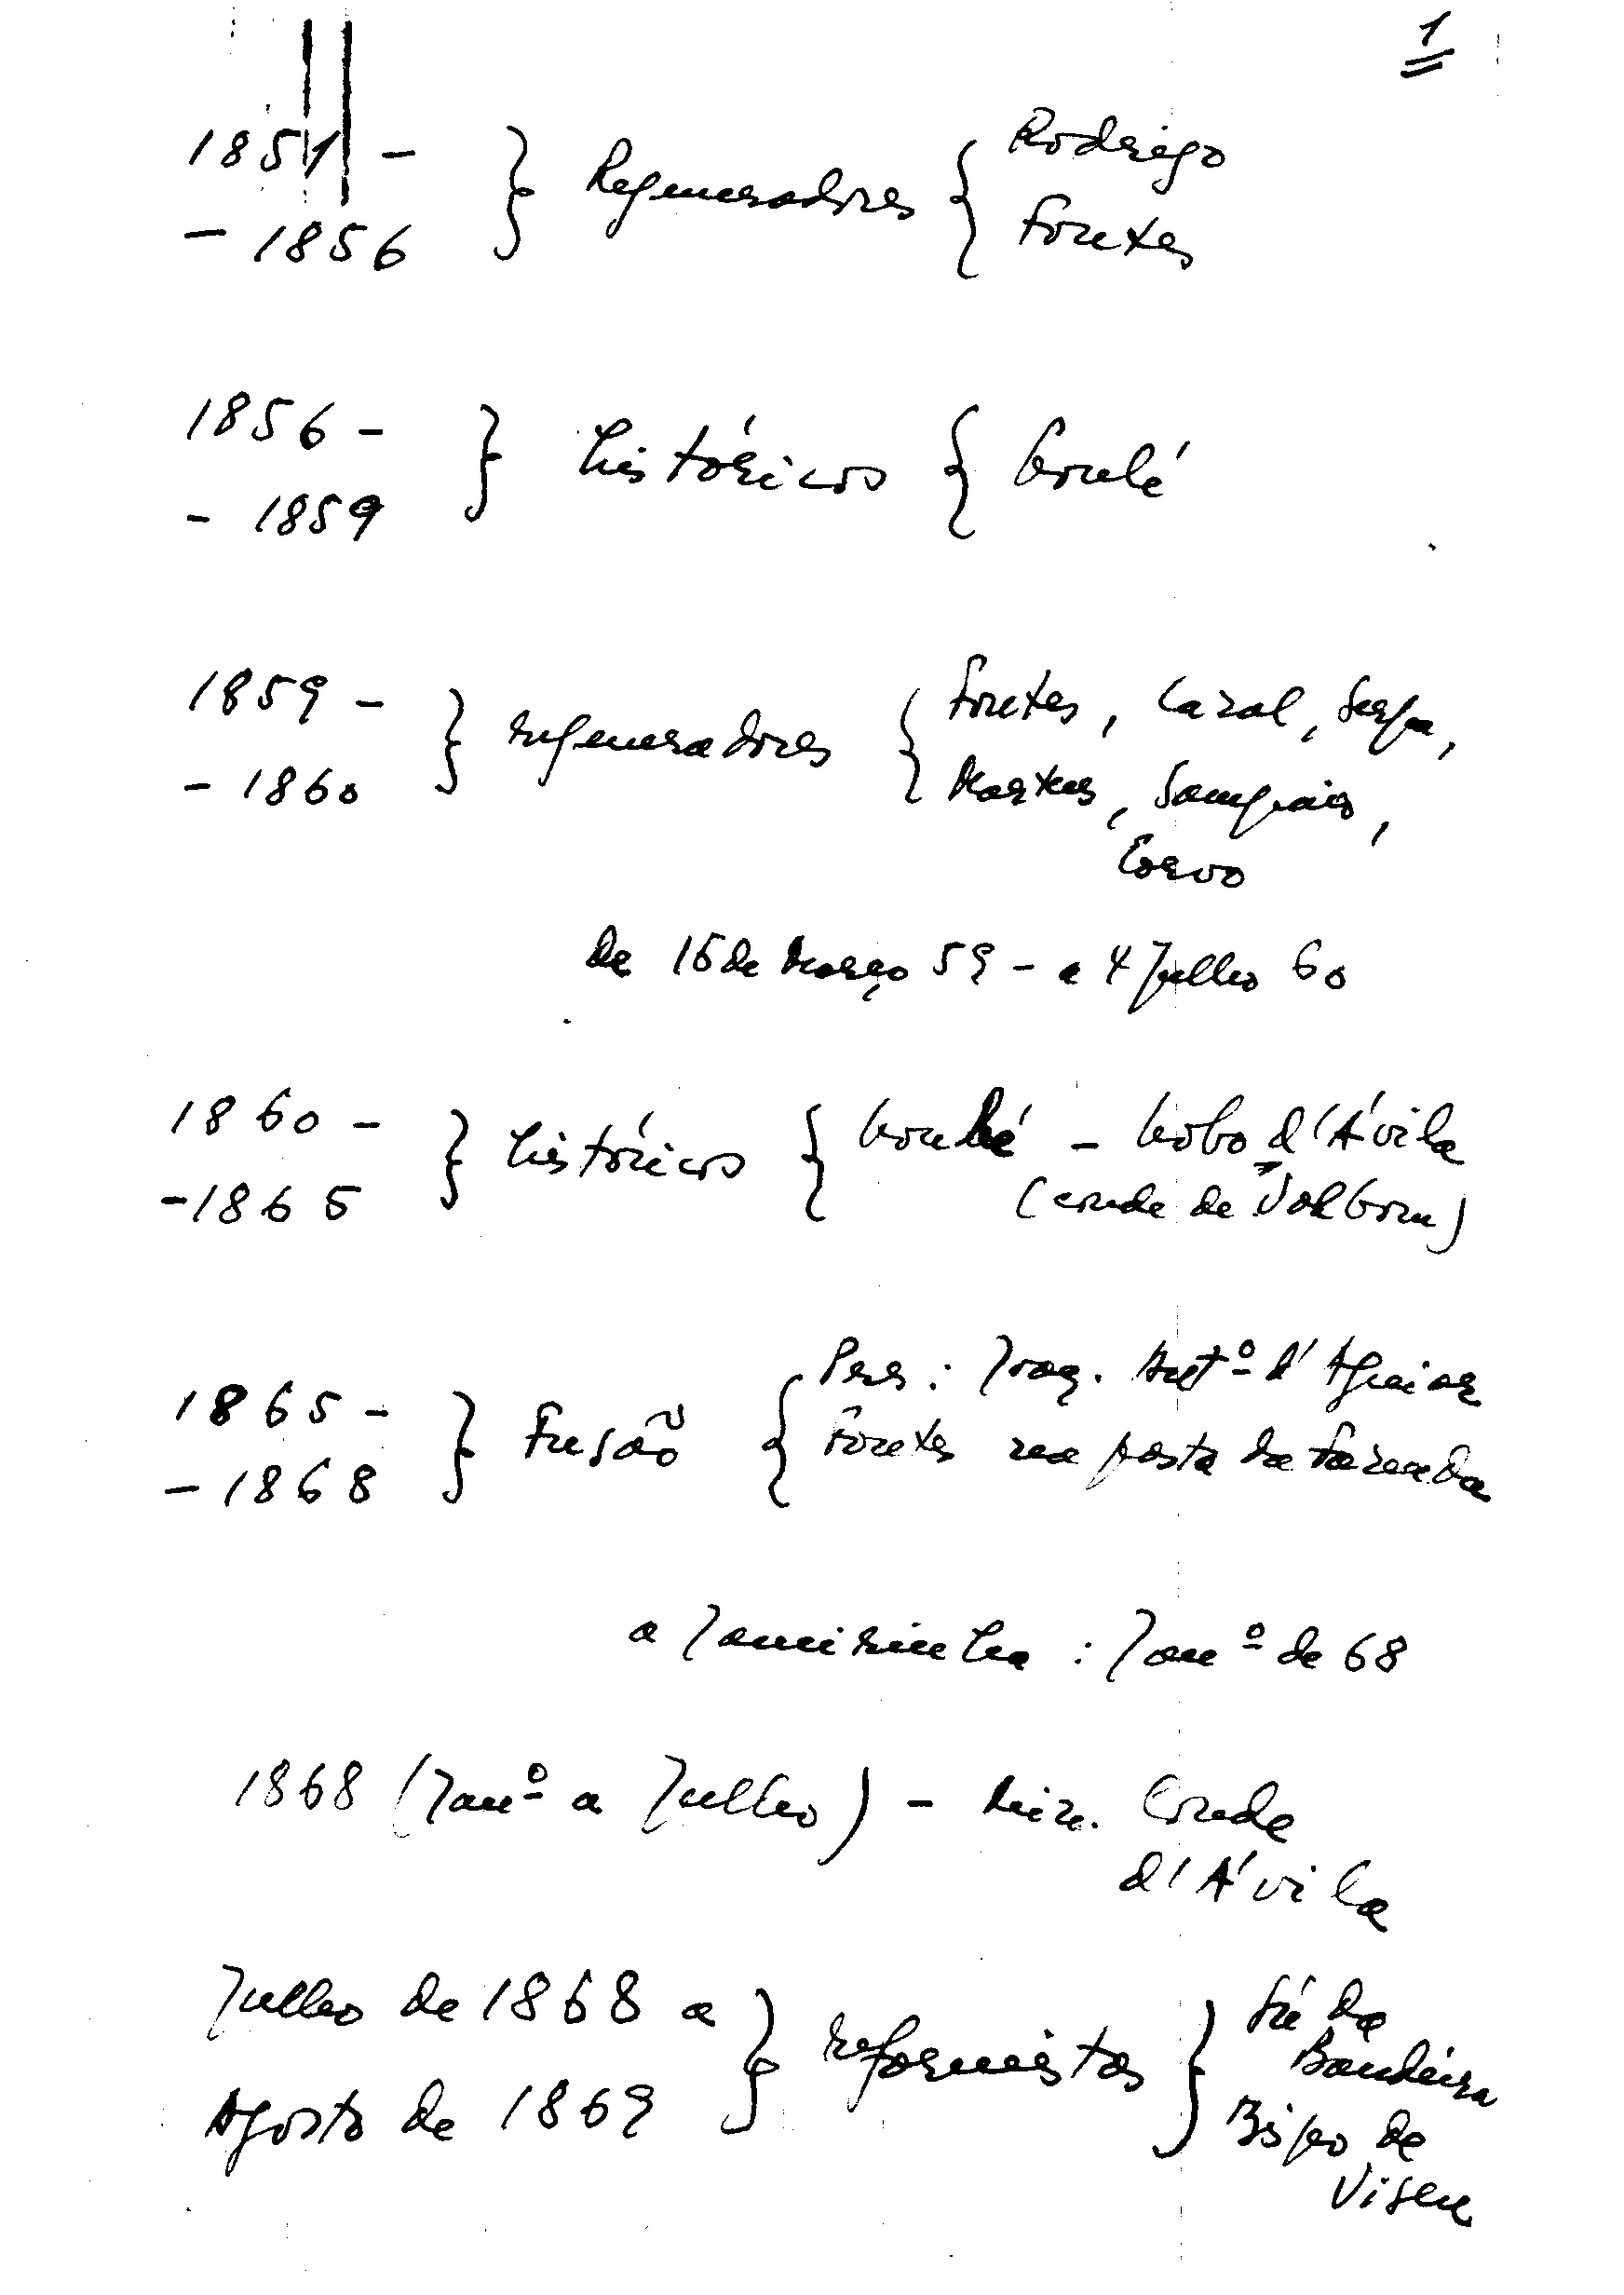 1
1851 -
- 1856 } Regeneradores { Rodrigo
Fontes
1856 -
- 1859 } históricos { Loulé
1859 -
- 1860 } regeneradores { Fontes, Cazal, Serpa,
Martens, Sampaio,
Corvo
de 16 de Março 59 - a 4 Julho 60
1860 -
- 1865 } históricos { Loulé - Lobo d'Ávila
(conde de Valbom)
1865 -
- 1868 } Fusão { Pres: Joaq. Antº d'Aguiar
Fontes na pasta da Fazenda
a Janeirinha : Janº de 68
1868 (Janº a Julho) - Min. Conde
d'Ávila
Julho de 1868 a
Agosto de 1869 } reformistas } Sá da
Bandeira
Bispo de
Viseu